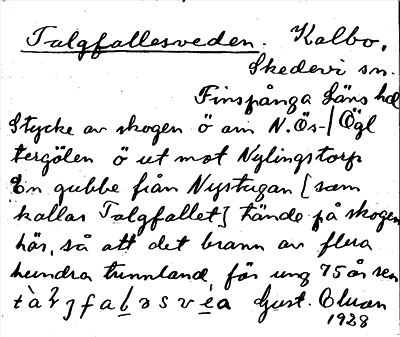 Talgfallesveden. Kalbo,
Skedevi sn.
Finspånga läns hd
Stycke av skogen ö om N. Ös-/Ögl
tergölen ö ut mot Nylingstorp
En gubbe från Nystugan [som
kallas Talgfallet] tände på skogen
här, så att det brann av flera
hundra tunnland, för ung 75 år sen
Gust. Eluan
1928